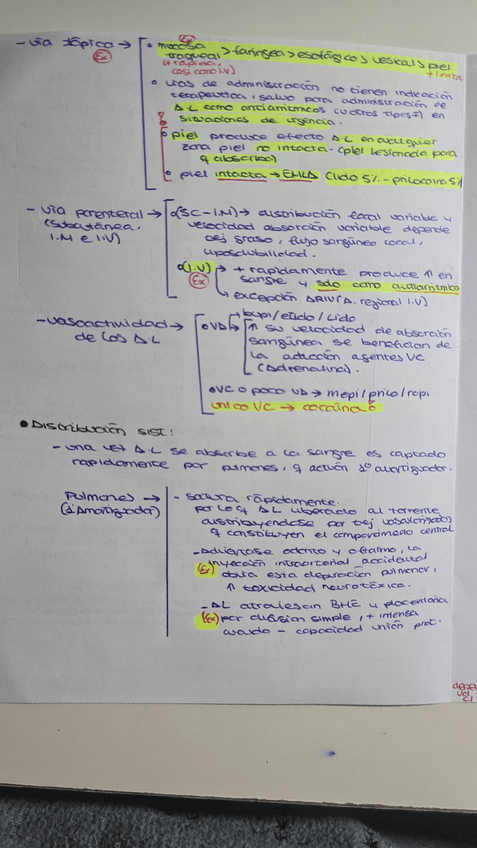 - vía tópica → • mucosa traqueal > faríngea > esofágico > vesical > piel
(Ex)
(+ rápida, casi como I.V)
+ lenta
• vías de administración no tienen indicación
terapéutica, salvo para administración de
AL como antiarrítmicos (u otros tipos) en
situaciones de urgencia.
• piel produce efecto AL en cualquier
zona piel no intacta - (piel lesionada para
q absorba)
• piel intacta → EMLA (lido 5% - prilocaína 5%
- vía parenteral → (subcutánea, I.M e I.V)
• (SC - I.M) → distribución local variable y
velocidad absorción variable, depende
tej graso, flujo sanguíneo local,
liposolubilidad.
• (I.V) → + rápidamente produce ↑ en
sangre y solo como antiarrítmico
(Ex)
↳ excepción ARIV (A. regional I.V)
- vasoactividad → de los AL
• VD → bupi/etido/lido
↑ su velocidad de absorción
sanguínea se benefician de
la adición agentes VC
(Adrenalina).
• VC o poco VD → mepi/prilo/ropi
único VC → cocaína
• Distribución sist:
- una vez AL se absorbe a la sangre es captado
rápidamente por pulmones, q actúan 1º amortiguador.
Pulmones → (1º Amortiguador)
- satura rápidamente.
por lo q AL liberado al torrente
distribuyéndose por tej vascularizados
q constituyen el compartimento central
- Adviértase odonto y oftalmo, la
inyección intraarterial accidental
(Ex) obvia esta depuración pulmonar,
↑ toxicidad neurotóxica.
- AL atraviesan BHE y placentaria
(Ex) por difusión simple, + intensa
cuando - capacidad unión prot.